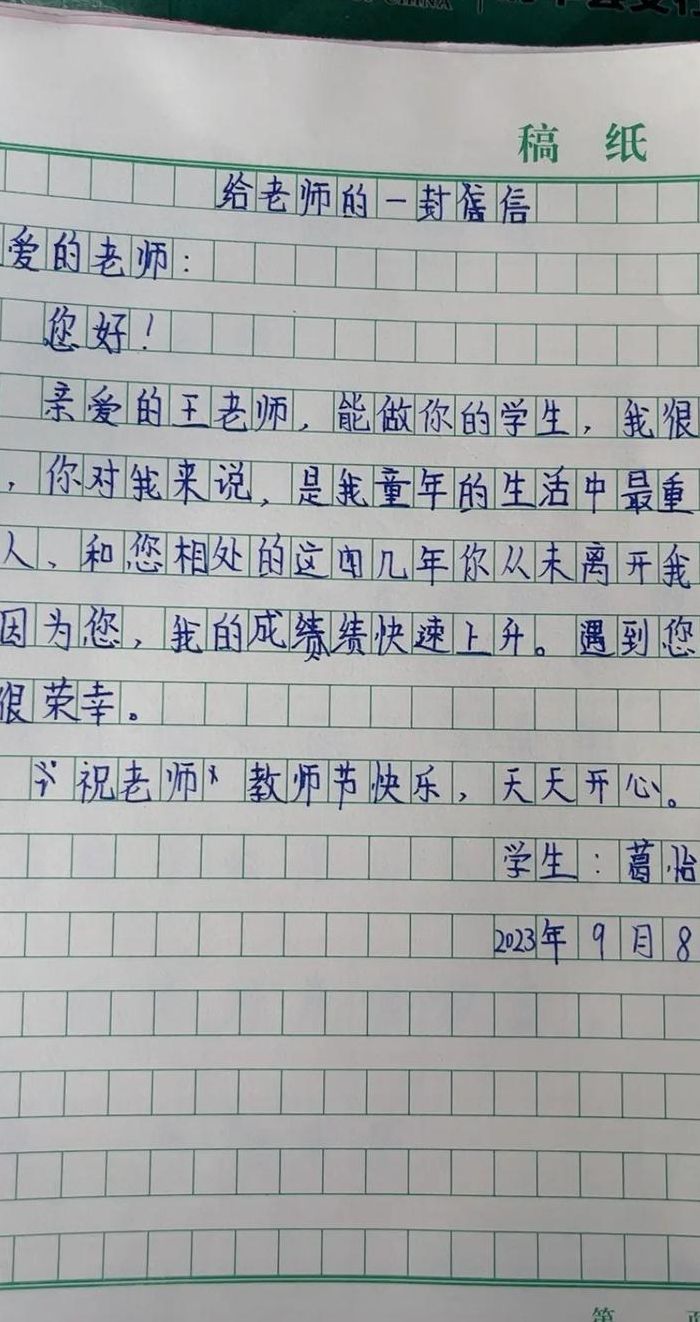 CHINA
稿纸
给老师的一封信
爱的老师：
您好！
亲爱的王老师，能做你的学生，我很
，你对我来说，是我童年的生活中最重
人、和您相处的这四几年你从未离开我
因为您，我的成绩绩快速上升。遇到您
很荣幸。
祝老师教师节快乐，天天开心。
学生：葛怡
2023年9月8
第